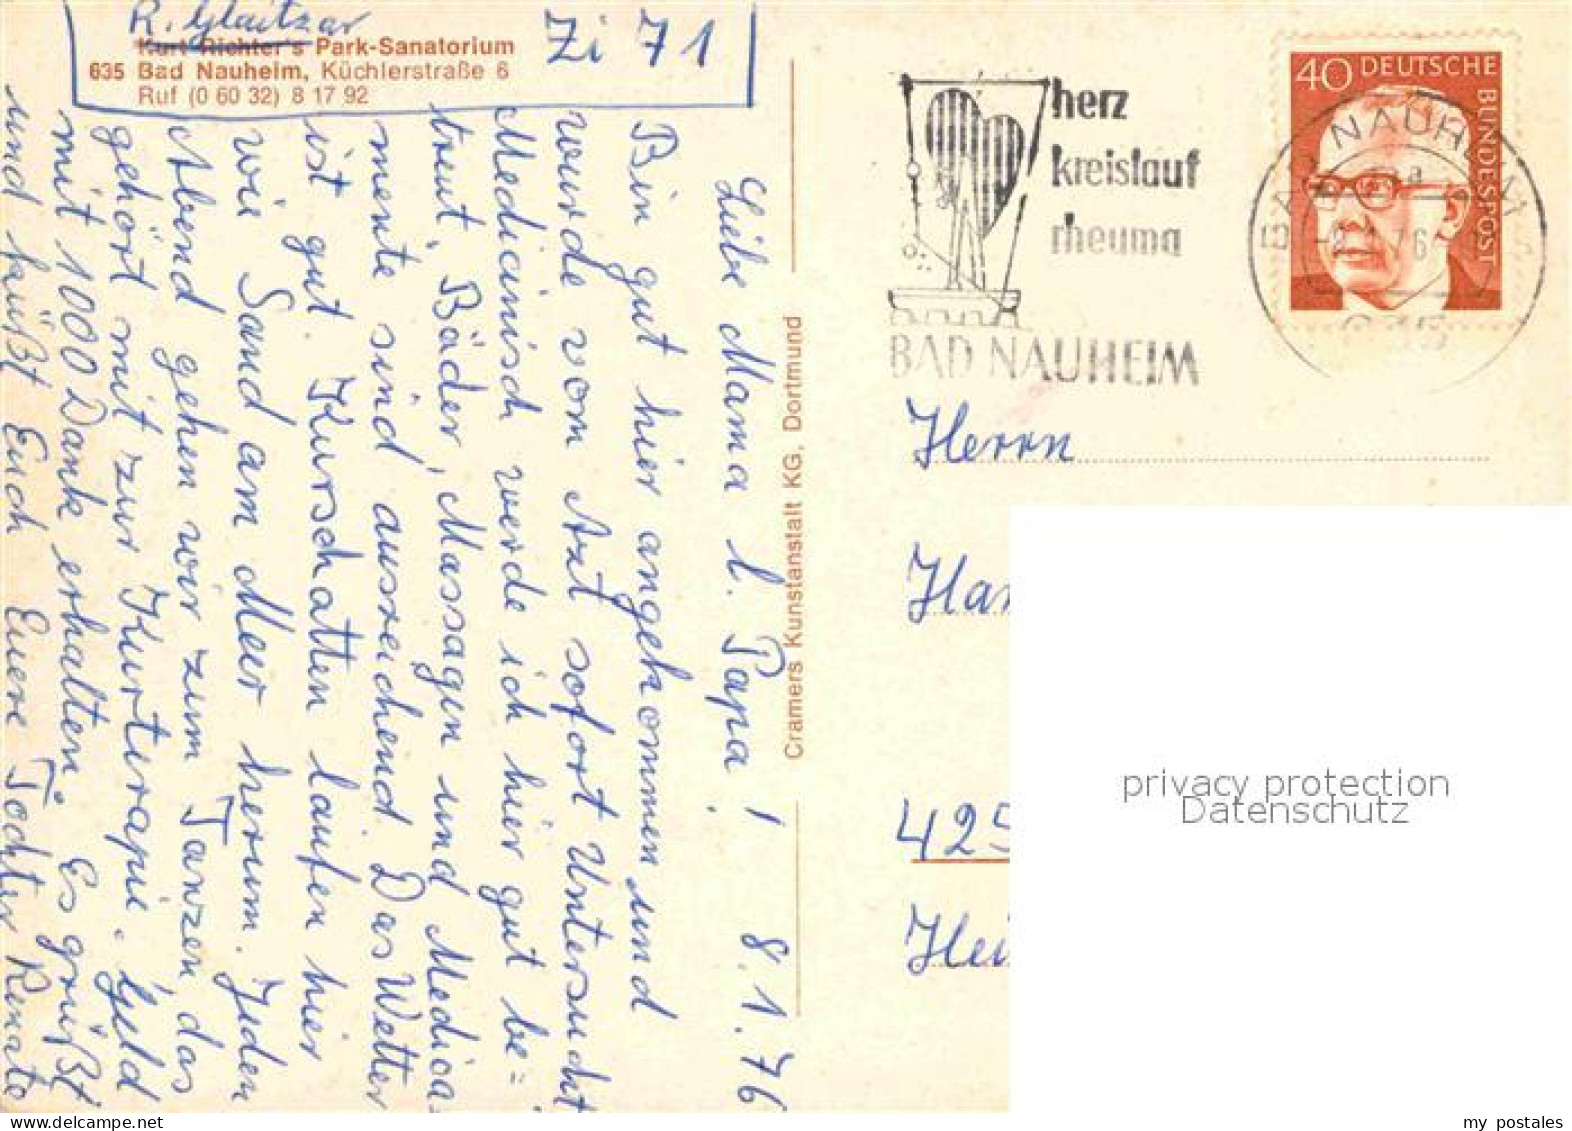 R. Glaitzar
Kurt Richter's Park-Sanatorium
635 Bad Nauheim, Küchlerstraße 6
Ruf (0 60 32) 8 17 92
Zi 71
Liebe Mama l. Papa! 8.1.76
Bin gut hier angekommen und
wurde vom Arzt sofort Untersucht
Medicinisch werde ich hier gut be=
treut, Bäder, Massagen und Medica-
mente sind ausreichend. Das Wetter
ist gut. Kurschatten laufen hier
wie Sand am Meer herum. Jeden
Abend gehen wir zum Tanzen, das
gehört mit zur Kurterapie. Geld
mit 1000 Dank erhalten. Es grüßt
und küßt Euch Euere Tochter Renate
Cramers Kunstanstalt KG, Dortmund
herz
kreislauf
rheuma
BAD NAUHEIM
40 DEUTSCHE
BUNDESPOST
BAD NAUHEIM
Herrn
Han
425
Hei
privacy protection
Datenschutz
www.ansichtskartenversand.com
my postales